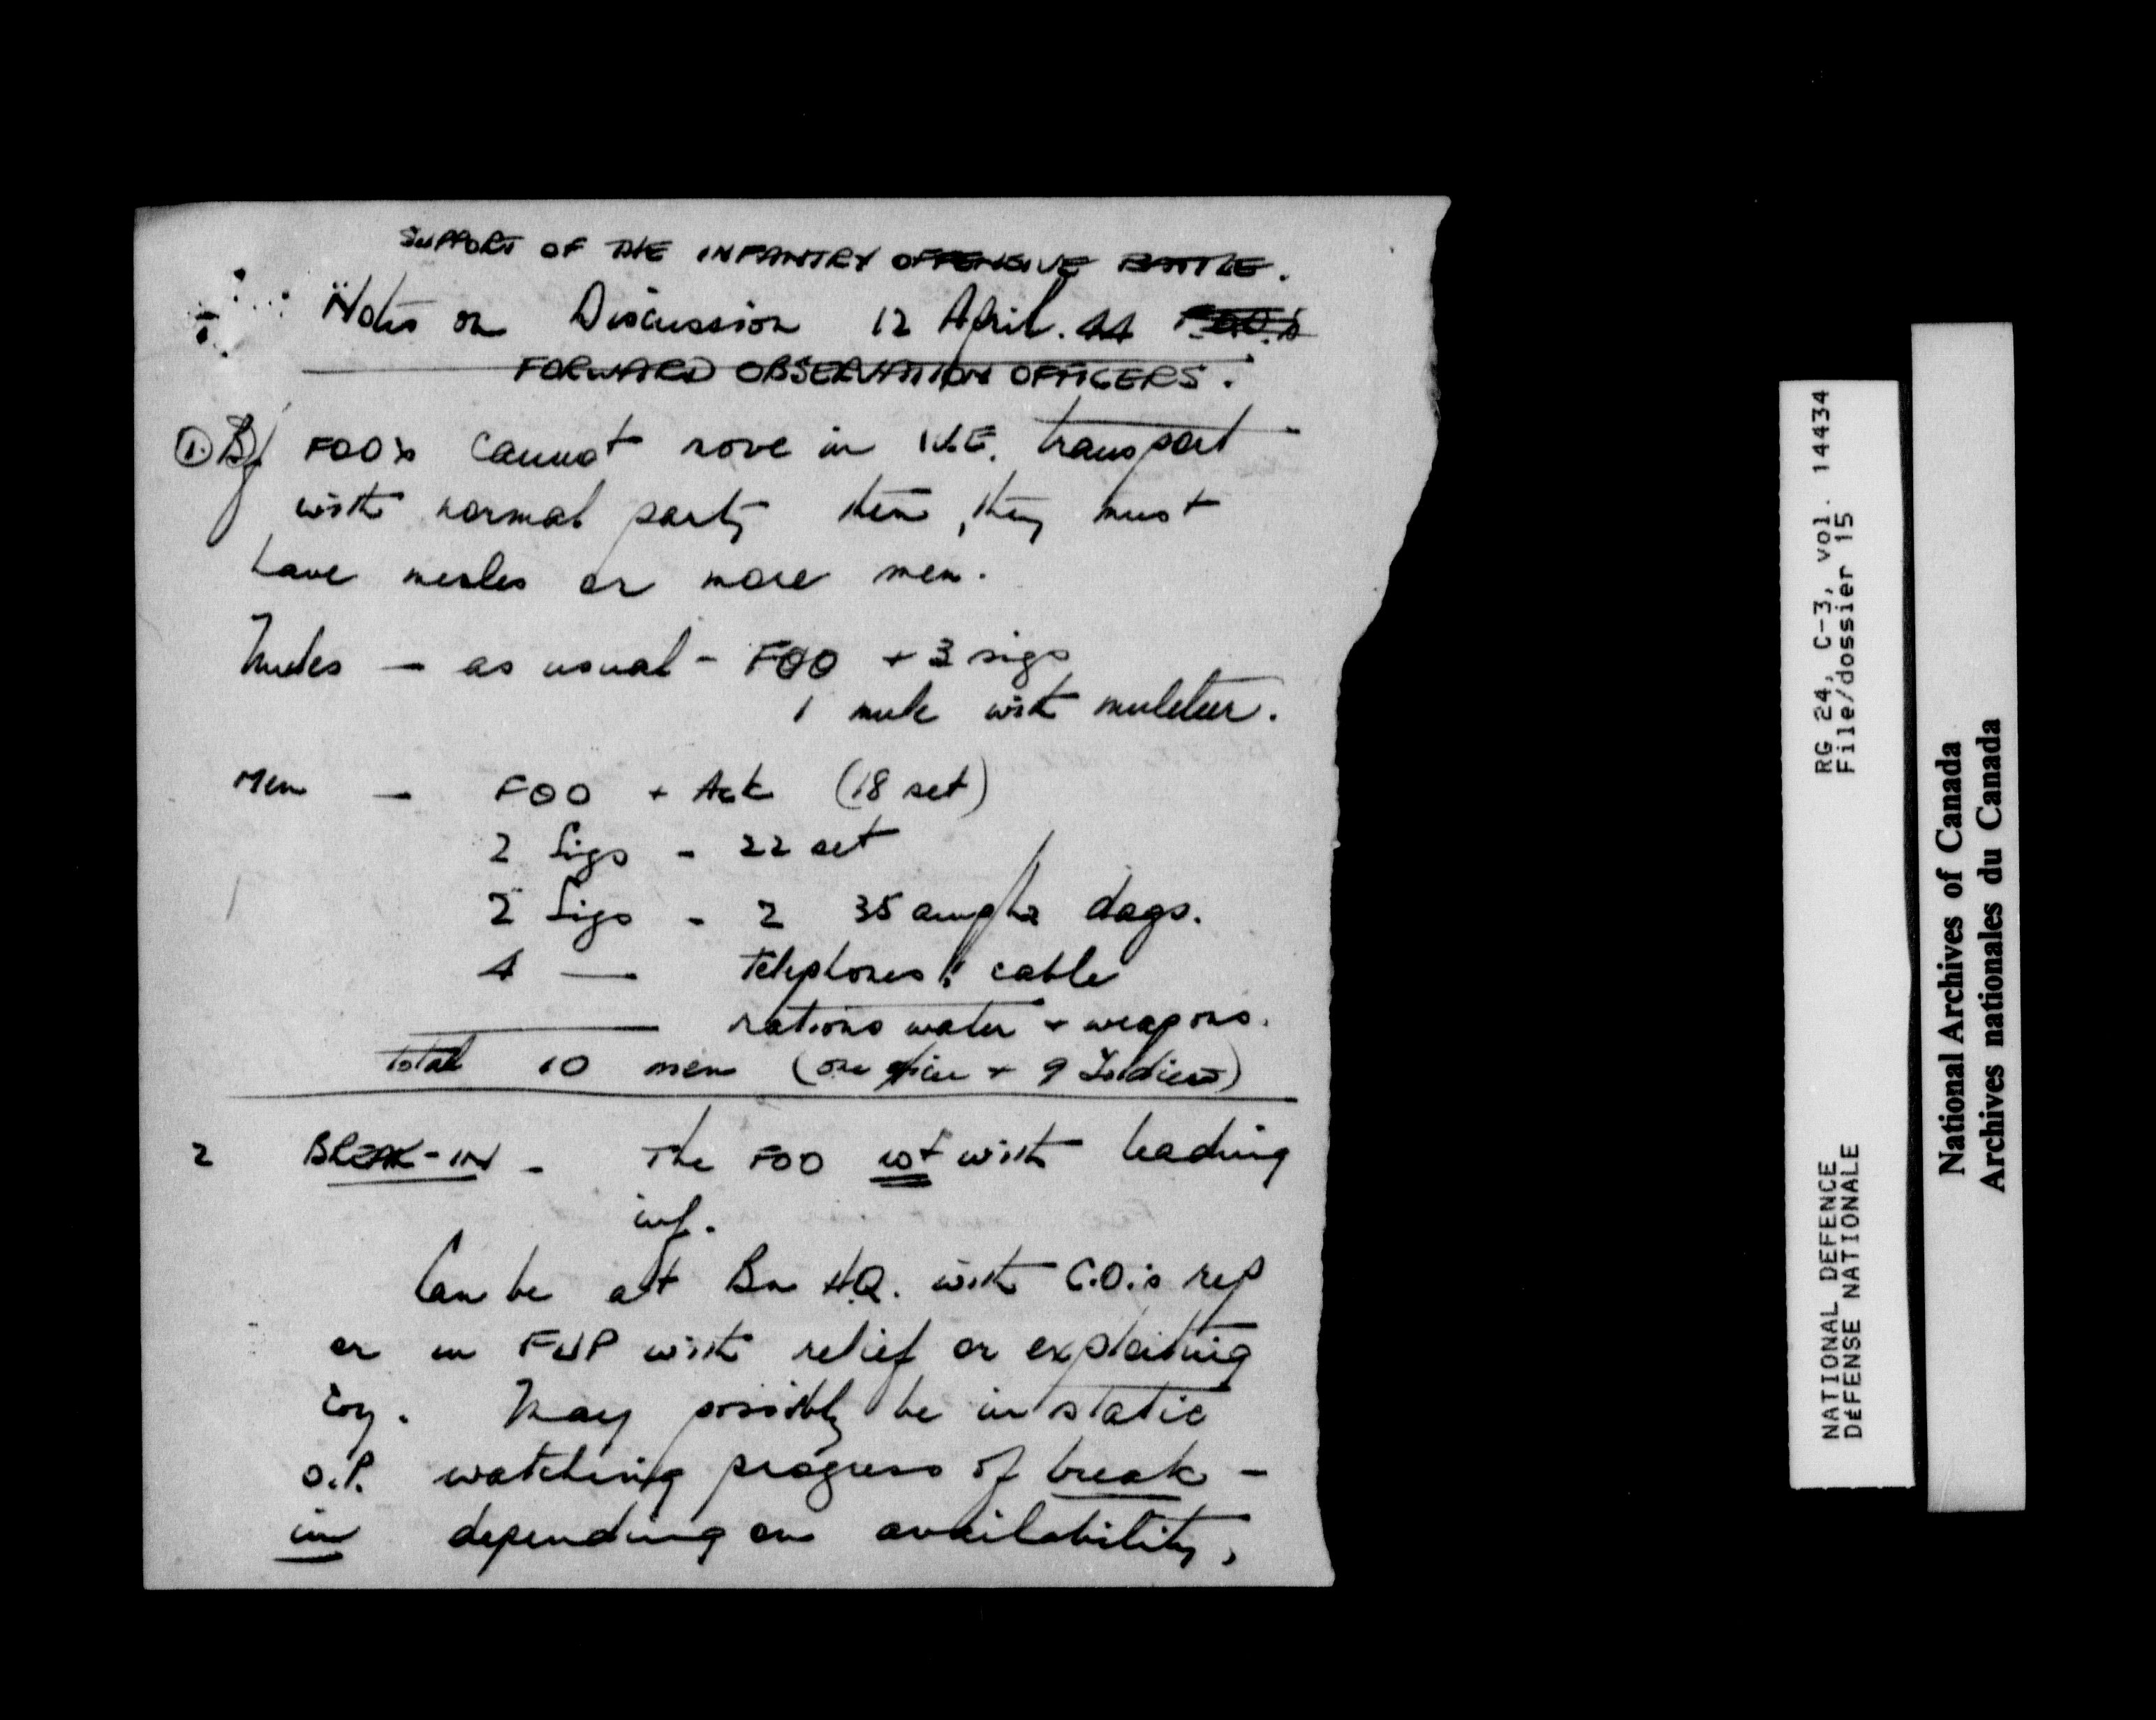 SUPPORT OF THE INFANTRY OFFENSIVE BATTLE.
Notes on Discussion 12 April. 44 F.O.O.'s
FORWARD OBSERVATION OFFICERS.
1. If FOO's cannot move in W.E. transport
with normal party then, they must
have mules or more men.
Mules — as usual - FOO + 3 sigs
1 mule with muleteer.
Men — FOO + Ack (18 set)
2 Sigs - 22 set
2 Sigs - 2 35 amp hr dags.
4 — telephones & cable
rations water + weapons.
Total 10 men (one officer + 9 Soldiers)
2 BREAK-IN - The FOO not with leading
inf.
Can be at Bn H.Q. with C.O.'s rep
or in FUP with relief or exploiting
Coy. May possibly be in static
O.P. watching progress of break-
in depending on availability,
RG 24, C-3, vol. 14434
File/dossier 15
NATIONAL DEFENCE
DÉFENSE NATIONALE
National Archives of Canada
Archives nationales du Canada